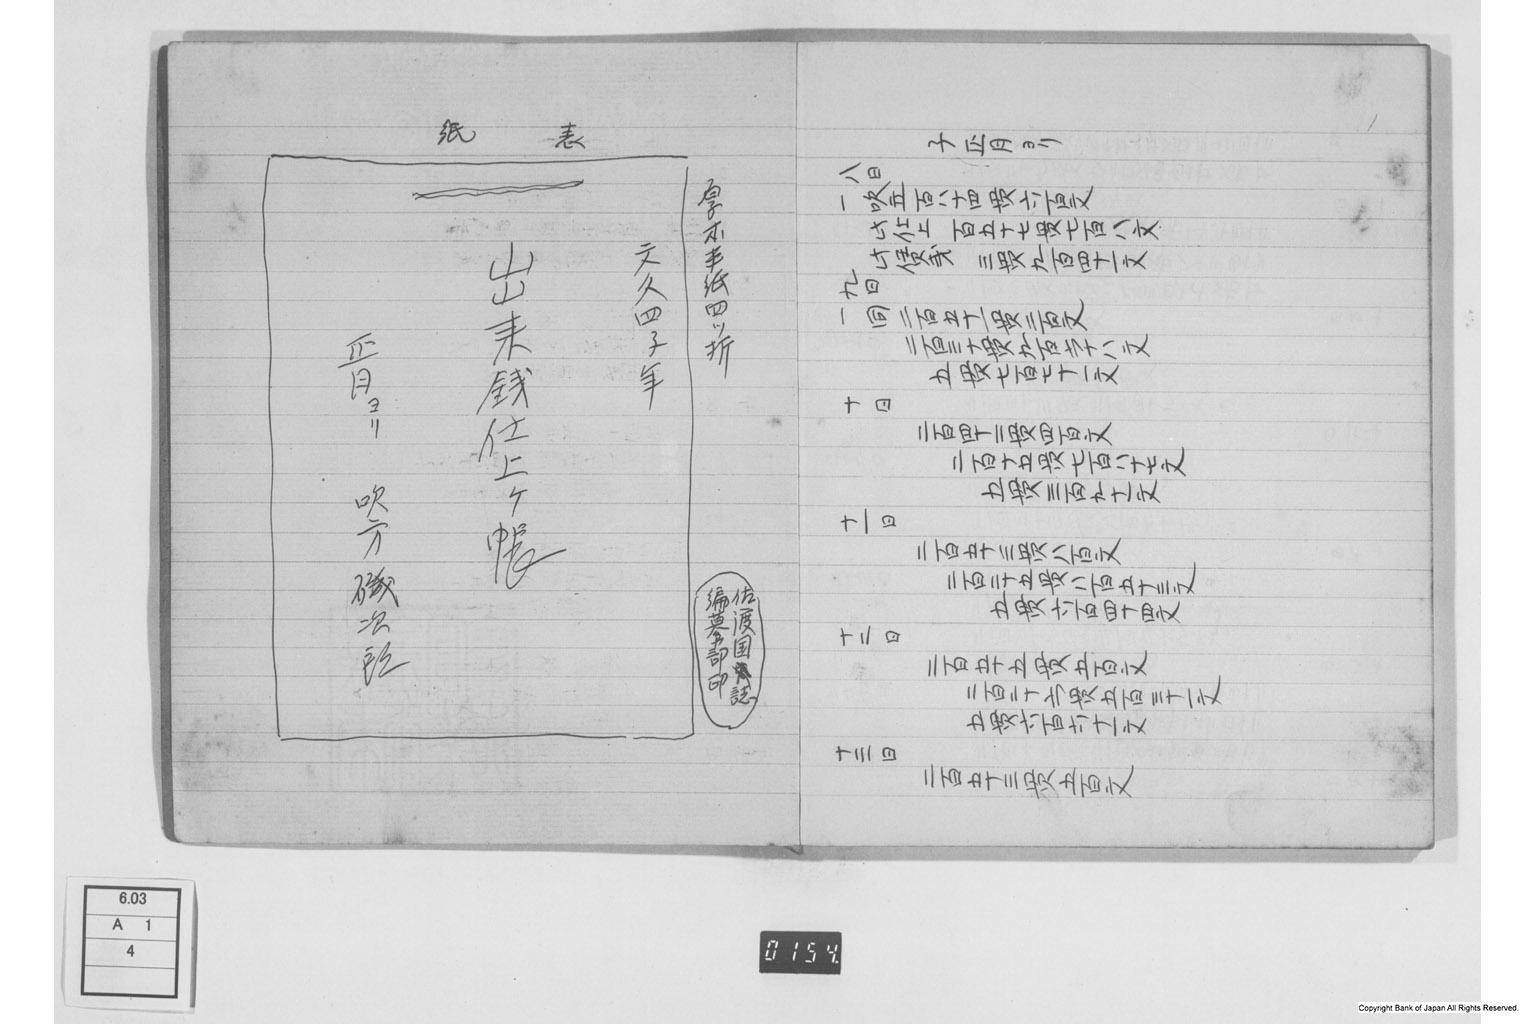 表紙
厚木半紙四ツ折
文久四子年
出来銭仕上ヶ帳
正月ヨリ 吹方 磯次郎
佐渡国誌
編纂部印
子正月ヨリ
八日
一吹五百八十四貫六百文
内仕上 百五十七貫七百八文
三貫九百四十一文
九日
一同二百五十一貫三百文
二百三十貫九百六十八文
五貫七百七十一文
十日
二百四十二貫四百文
二百十五貫七百八十七文
五貫三百九十一文
十一日
二百五十三貫八百文
二百二十五貫八百五十三文
五貫六百四十四文
十二日
二百五十五貫五百文
二百二十六貫五百三十一文
五貫六百六十一文
十三日
二百五十三貫五百文
6.03
A 1
4
0154.
Copyright Bank of Japan All Rights Reserved.